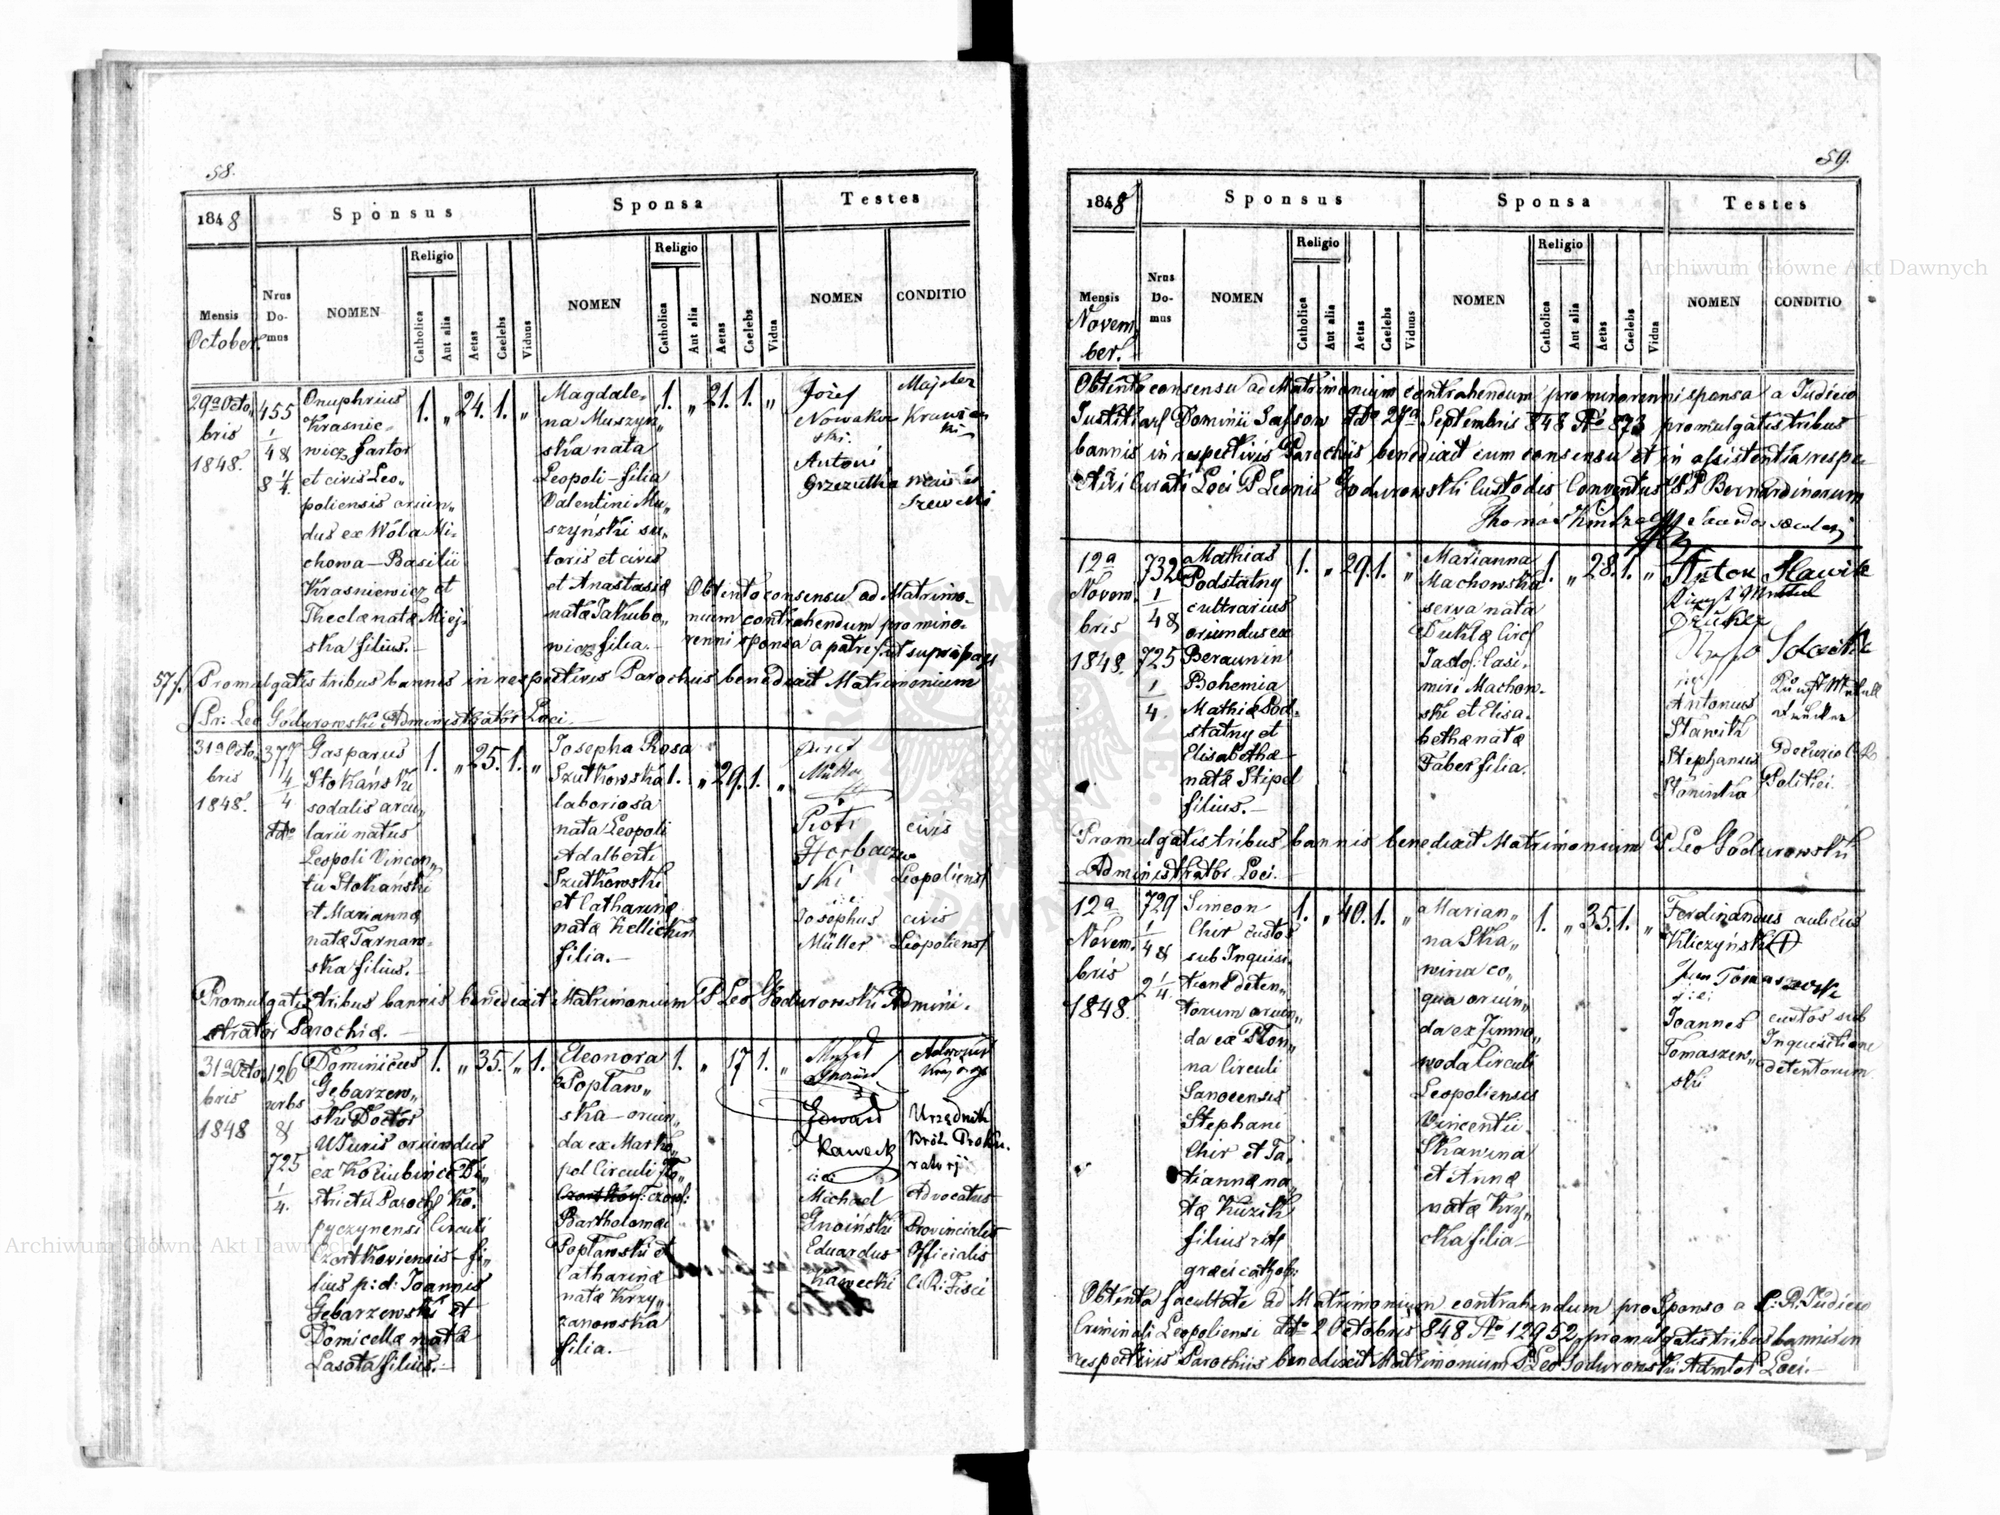 58.
1848
Sponsus
Sponsa
Testes
Mensis
October.
Nrus Do-mus
NOMEN
Religio
Catholica
Aut alia
Aetas
Caelebs
Viduus
NOMEN
Religio
Catholica
Aut alia
Aetas
Caelebs
Vidua
NOMEN
CONDITIO
29a Octo
bris
1848.
455
1/48
8 1/4
Onuphrius
Krasnie„
wicz Sartor
et civis Leo„
poliensis oriun„
dus ex Wola Mi-
chowa – Basilii
Krasniewicz et
Theclæ natæ Miej-
ska filius.–
1. „ 24. 1. „
Magdale„
na Muszyn„
ska nata
Leopoli – filia
Valentini Mu„
szyński su„
toris et civis
et Anastasiæ
natæ Jakubo„
wicz filia.–
1. „ 21. 1. „
Józef
Nowakow
ski.
Antoni
Grzezulka
Majster
Krawiec
ki
Obtento consensu ad Matrimo-
nium contrahendum pro mino-
renni sponsa a patre, ut supra pag
57/. Promulgatis tribus bannis in respectivis Parochiis benedixit Matrimonium
Pr: Leo Godurowski Administrator Loci.–
31a Octo„
bris
1848.
377
4/4
Gasparus
Stokański
sodalis arcu„
larii natus
Leopoli Vincen„
tii Stokański
et Mariannæ
natæ Tarnaw-
ska filius.–
1. „ 25. 1. „
Josepha Rosa
Szutkowska
laboriosa
nata Leopoli
Adalberti
Szutkowski
et Catharinæ
natæ Kellichin
filia.–
1. „ 29. 1. „
Józef
Müller
Piotr
Horbaczew
ski
Josephus
Müller
civis
Leopoliens
civis
Leopoliens
Promulgatis tribus bannis benedixit Matrimonium P Leo Godurowski Admini-
strator Parochiæ.–
31a Octo
bris
1848
126
urbs
&
725
1/4.
Dominicus
Gębarzew„
ski Doctor
U Juris oriundus
ex Kociubince Di„
strictu Paroch Ko„
pyczynensi Circuli
Czortkoviensis – fi„
lius p: d: Joannis
Gębarzewski et
Domicellæ natæ
Lasota filius.–
1. „ 35. „ 1.
Eleonora
Popław„
ska – oriun„
da ex Marko„
pol Circuli
Bartholomæi
Popławski et
Catharinæ
natæ Krzy„
zanowska
filia.–
1. „ 17 1. „
Edward
Kawecki
Michael
Gnoiński
Eduardus
Kawecki
Adwokat
Krajowy
Urzędnik
Król. Proku-
ratorji
Advocatus
Provincialis
Officialis
C: R: Fisci
59.
1848
Sponsus
Sponsa
Testes
Mensis
Novem
ber.
Nrus Do-mus
NOMEN
Religio
Catholica
Aut alia
Aetas
Caelebs
Viduus
NOMEN
Religio
Catholica
Aut alia
Aetas
Caelebs
Vidua
NOMEN
CONDITIO
Obtento consensu ad Matrimonium contrahendum pro minorenni sponsa a Judicio
Dominii Sassow dto 27a Septembris 848 No 873 promulgatis tribus
bannis in respectivis Parochiis benedixit cum consensu et in assistentia respe-
ctivi Curati Loci P Leonis Godurowski Custodis Conventus PP Bernardinorum
12a
Novem.
bris
1848.
732
1/48
725
1/4.
Mathias
Podstatny
cultrarius
oriundus ex
Beraun in
Bohemia
Mathiæ Pod-
statny et
Elisabethæ
natæ Stipel
filius.–
1. „ 29. 1. „
Marianna
Machowska
serva nata
Duklæ Circ
Jasl: Casi-
miri Machow-
ski et Elisa-
bethæ natæ
Faber filia.
1. „ 28. 1. „
Anton Slawik
Antonius
Slawik
Stephanus
Promulgatis tribus bannis benedixit Matrimonium P Leo Godurowski
Administrator Loci.–
12a
Novem.
bris
1848.
729
1/48
2 1/4
Simeon
Chir custos
sub Inquisi„
tione deten„
torum oriun„
da ex Płon„
na Circuli
Sanocensis
Stephani
Chir et Ta„
tiannæ na„
tæ Kuzik
filius rit
græci cathol:
1. „ 40. 1. „
Marian„
na Ska„
wina co„
qua oriun„
da ex Zimno„
woda Circuli
Leopoliensis
Vincentii
Skawina
et Annæ
natæ Kry„
cka filia–
1. „ 35. 1. „
Ferdinandus
Kliczyński
aulicus
Jan Tomaszewski
Joannes
Tomaszew„
ski
custos sub
Inquisitione
detentorum
Obtenta facultate ad Matrimonium contrahendum pro Sponso a C: R: Judicio
Criminali Leopoliensi dto 2 Octobris 848 No 12952, promulgatis tribus bannis in
respectivis Parochiis benedixit Matrimonium P Leo Godurowski Admtor Loci.–
Archiwum Główne Akt Dawnych
Archiwum Główne Akt Dawnych